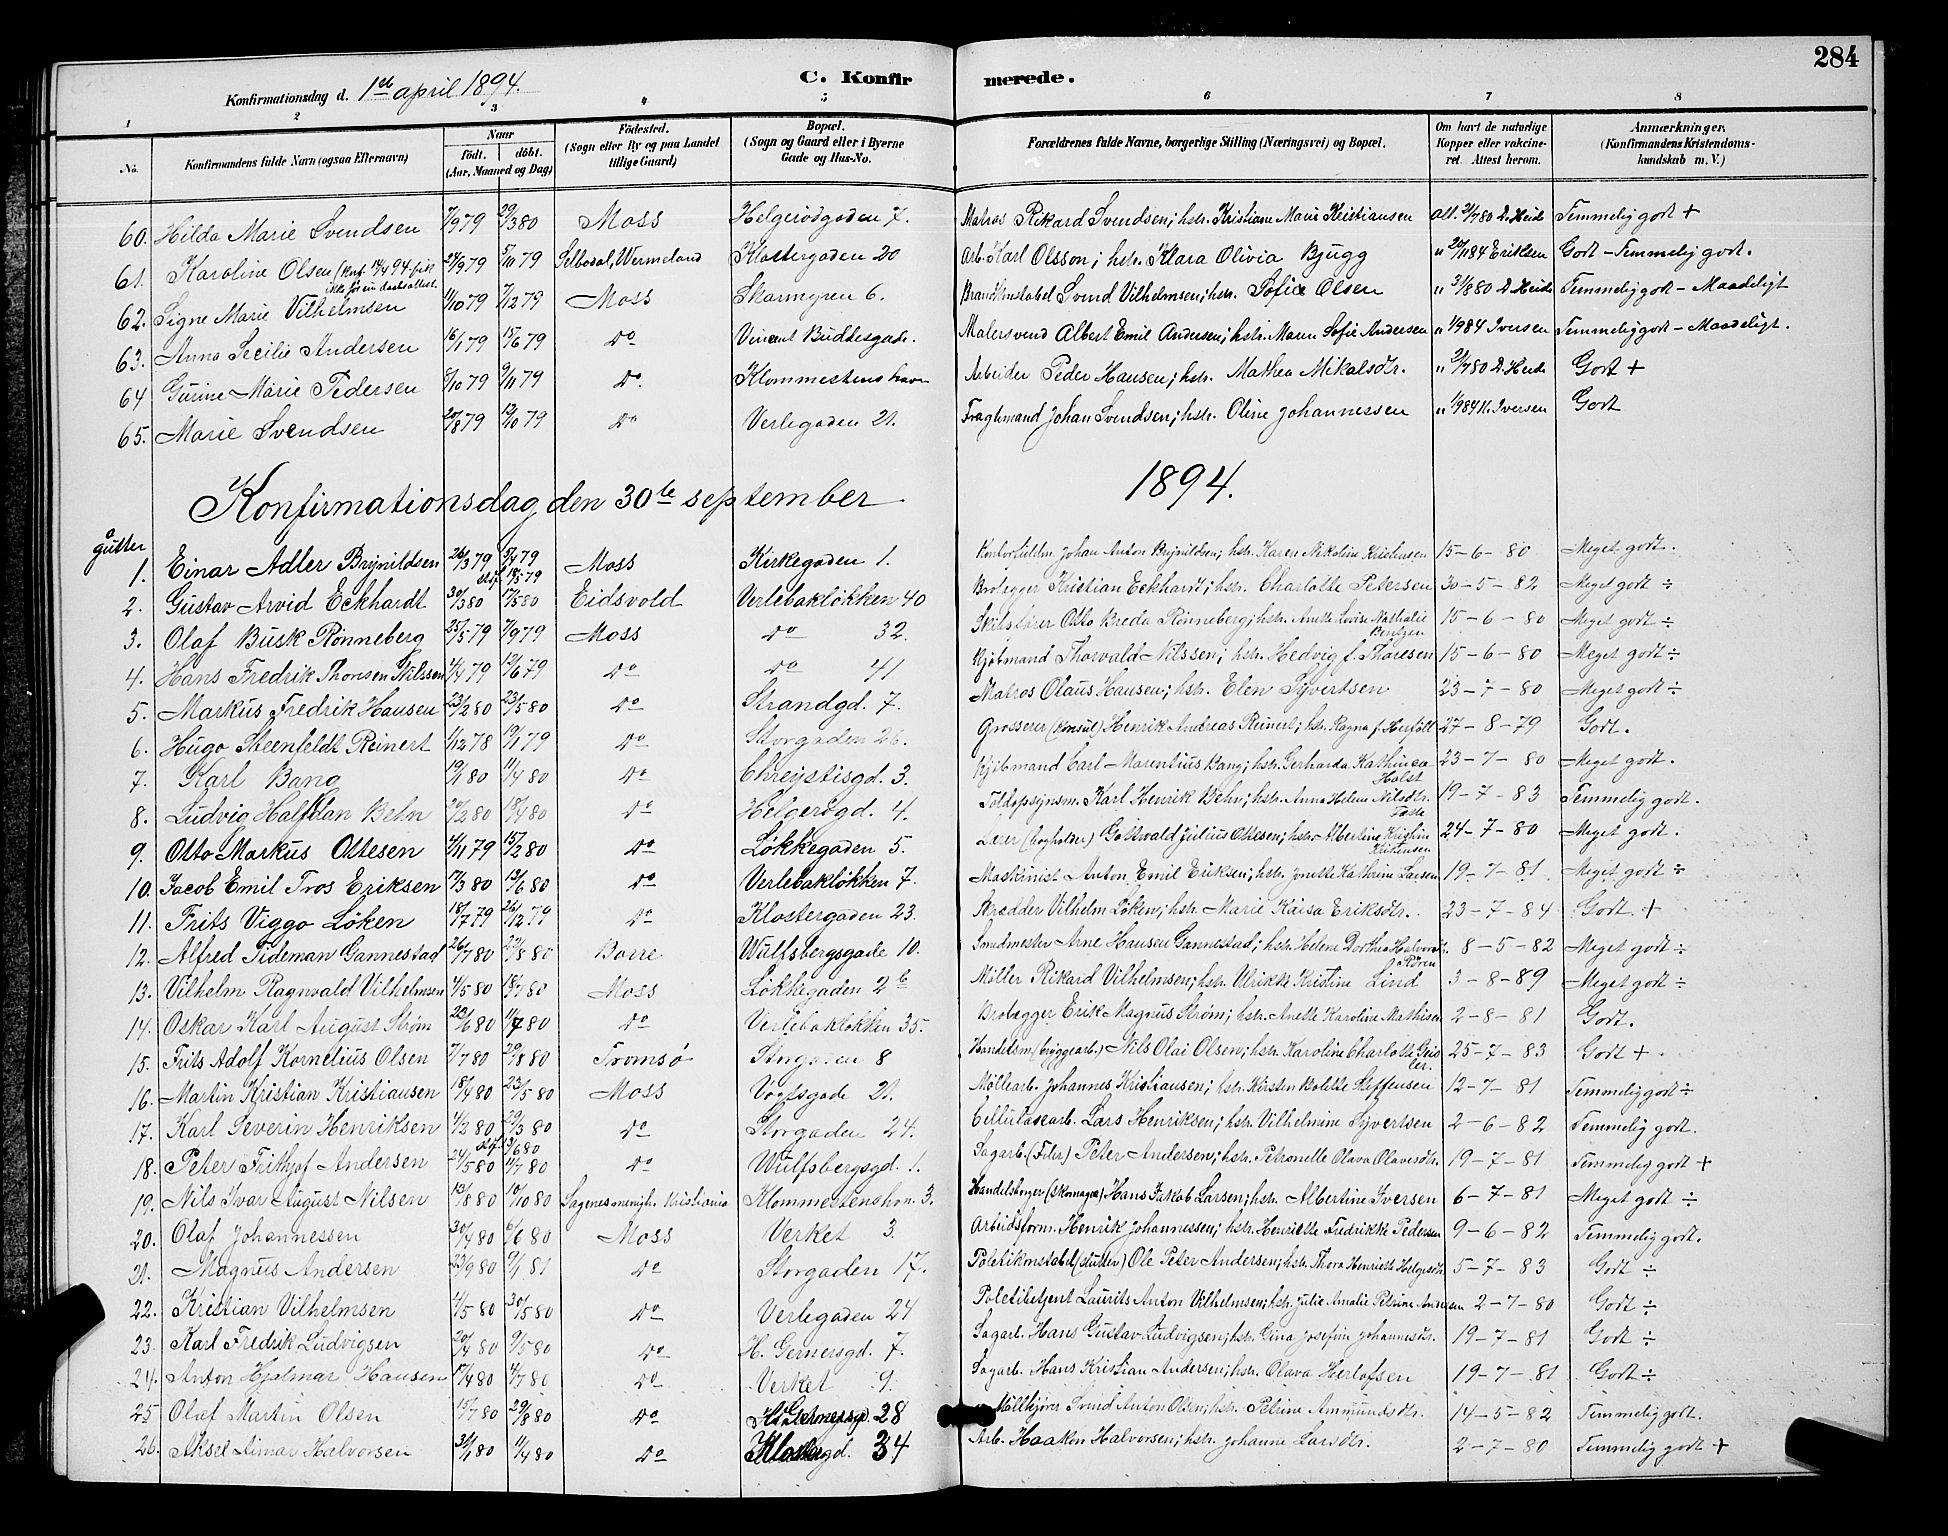 284
C. Konfirmerede.
Konfirmationsdag d. 1ste april 1894.
1 2 3 4 5 6 7 8
No. Konfirmandens fulde Navn (ogsaa Efternavn) Naar födt. döbt. (Aar, Maaned og Dag) Födested. (Sogn eller By og paa Landet tillige Gaard) Bopæl. (Sogn og Gaard eller i Byerne Gade og Hus-No. Forældrenes fulde Navne, borgerlige Stilling (Næringsvei) og Bopæl. Om havt de naturlige Kopper eller vakcineret. Attest herom. Anmærkninger. (Konfirmandens Kristendomskundskab m. V.)
60. Hilda Marie Svendsen 7/9 79 29/3 80 Moss Helgerødgaden 7. Matros Rikard Svendsen; hstr. Kristiane Marie Kristiansen att. 2/7 80 D. Heide Temmelig godt +
61. Karoline Olsen 27/9 79 5/10 79 Selbodal, Vermeland Klostergaden 20 Arb. Karl Olsson; hstr. Klara Olivia Bjugg " 20/11 84 Eriksen Godt – Temmelig godt.
62. Signe Marie Vilhelmsen 11/10 79 7/12 79 Moss Skarmyren 6. Brandkonstabel Svend Vilhelmsen; hstr. Sofie Olsen " 3/8 80 D. Heide Temmelig godt – Maadeligt
63. Anna Secilie Andersen 16/1 79 15/6 79 Do Vincent Buddesgade. Malersvend Albert Emil Andersen; hstr. Maren Sofie Andersen " 1/9 84 Iversen Temmelig godt – Maadeligt.
64 Gurine Marie Pedersen 8/10 79 9/11 79 Do. Klommestens havn Arbeider Peder Hansen; hstr. Mathea Mikalsdtr. " 2/7 80 D. Heide Godt +
65. Marie Svendsen 20/8 79 12/10 79 Do Verlegaden 21. Fragtmand Johan Svendsen; hstr. Oline Johannessen " 1/9 84 N. Iversen Godt
Konfirmationsdag den 30te september 1894.
a gutter
1. Einar Adler Brynildsen 26/3 79 5/4 79 Moss Kirkegaden 1. Kontorfuldm. Johan Anton Brynildsen; hstr. Karen Nikoline Kristensen 15-6-80 Meget godt.
2. Gustav Arvid Eckhardt 30/3 80 17/5 80 Eidsvold Verlebakløkken 40 Brolegger Kristian Eckhardt; hstr. Charlotte Petersen 30-5-82 Meget godt ÷
3. Olaf Busk Rønneberg 25/5 79 7/9 79 Moss Do 32. Skibsfører Otto Breda Rønneberg; hstr. Anette Lovise Nathalie Bentzen 15-6-80 Meget godt ÷
4. Hans Fredrik Thoresen Nilssen 4/4 79 12/6 79 Do Do 41 Kjøbmand Thorvald Nilssen; hstr. Hedvig f. Thoresen 15-6-80 Meget godt ÷
5. Markus Fredrik Hansen 23/2 80 23/5 80 Do Strandgd. 7. Matros Olaus Hansen; hstr. Elen Syvertsen 23-7-80 Meget godt ÷
6. Hugo Steenfeldt Reinert 1/12 78 19/1 79 Do Storgaden 26. Grosserer (Konsul) Henrik Andreas Reinert; hstr. Ragna f. Herføll 27-8-79 Godt.
7. Karl Bang 19/1 80 11/4 80 Do Chrystisgd. 3. Kjøbmand Carl Marentius Bang; hstr. Gerharda Kathinca Holst 23-7-80 Meget godt.
8. Ludvig Halfdan Behn 20/2 80 18/4 80 Do Helgerøgd. 4. Toldopsynsm. Karl Henrik Behn; hstr. Anna Helene Nilsdtr. Foss 19-7-83 Temmelig godt.
9. Otto Markus Ottesen 4/11 79 15/2 80 Do Løkkegaden 5. Lærer (bogholder) Gottvald Julius Ottesen; hstr. Albertine Kristine Kristensen 24-7-80 Meget godt.
10. Jacob Emil Tros Eriksen 17/3 80 13/6 80 Do Verlebakløkken 7. Maskinist Anton Emil Eriksen; hstr. Jonette Kathrine Larsen 19-7-81 Meget godt ÷
11. Frits Viggo Løken 18/7 79 26/12 79 Do Klostergaden 23. Skrædder Vilhelm Løken; hstr. Marie Kaisa Eriksdtr. 23-7-84 Godt +
12. Alfred Tideman Gannestad 26/7 80 29/8 80 Borre Wulfsbergsgade 10. Sandmester Arne Hansen Gannestad; hstr. Helene Dorthea Halvorsdtr. Røren 8-5-82 Meget godt ÷
13. Vilhelm Ragnvald Vilhelmsen 4/5 80 18/7 80 Moss Løkkegaden 2 b Møller Rikard Vilhelmsen; hstr. Ulrikke Kristine Lind 3-8-89 Meget godt ÷
14. Oskar Karl August Strøm 23/6 80 11/7 80 Do Verlebakløkken 35. Brolægger Erik Magnus Strøm; hstr. Anette Karoline Mathisen 2-8-81 Godt.
15. Frits Adolf Kornelius Olsen 7/7 80 29/8 80 Tromsø Storgaden 8 Handelsm. (bryggearb.) Nils Olai Olsen; hstr. Karoline Charlotte Geisler. 25-7-83 Godt +
16. Martin Kristian Kristiansen 18/4 80 23/5 80 Moss Vogtsgade 21. Møllearb. Johannes Kristiansen; hstr. Kirsten Bolette Steffensen 12-7-81 Temmelig godt ÷
17. Karl Severin Henriksen 4/3 80 29/3 80 Do Storgaden 24. Cellulosearb. Lars Henriksen; hstr. Vilhelmine Syvertsen 2-6-82 Temmelig godt.
18. Peter Frithjof Andersen 24/5 80 11/7 80 Do Wulfsbergsgd. 1. Sagarb. (Filer) Peter Andersen; hstr. Petronelle Olava Olavesdtr. 19-7-81 Temmelig godt +
19. Nils Ivar August Nilsen 13/8 80 10/10 80 Sagenes menigh. Kristiania Klommestenshvn. 3. Handelsborger (Skomager) Hans Jakob Larsen; hstr. Albertine Iversen 6-7-81 Meget godt ÷
20. Olaf Johannessen 30/4 80 6/6 80 Moss Verket 3. Arbeidsform. Henrik Johannessen; hstr. Henriette Fredrikke Pedersen 9-6-82 Temmelig godt.
21. Magnus Andersen 23/9 80 9/1 81 Do Storgaden 17. Politikonstabel (slutter) Ole Peter Andersen; hstr. Thora Henriette Helgesdtr 5-7-83 Godt ÷
22. Kristian Vilhelmsen 4/5 80 30/5 80 Do Verlegaden 24 Politibetjent Laurits Anton Vilhelmsen; hstr. Julie Amalie Petrine Andersen 2-7-80 Godt ÷
23. Karl Fredrik Ludvigsen 20/4 80 9/5 80 Do H. Gernersgd. 7. Sagarb. Hans Gustav Ludvigsen; hstr. Gina Josefine Johannesdtr. 19-7-81 Godt ÷
24. Anton Hjalmar Hansen 17/4 80 4/7 80 Do Verket 9. Sagarb. Hans Kristian Andersen; hstr. Olava Herlofsen 19-7-81 Godt ÷
25 Olaf Martin Olsen 15/7 80 29/8 80 Do 28 Svend Anton Olsen; hstr. Petrine Ammundsdtr. 14-5-82 Temmelig godt.
26. Aksel Aimar Halvorsen 31/1 80 11/4 80 Do Klostergd. 34 Arb. Haakon Halvorsen; hstr. Johanne Larsdtr. 2-7-80 Temmelig godt +